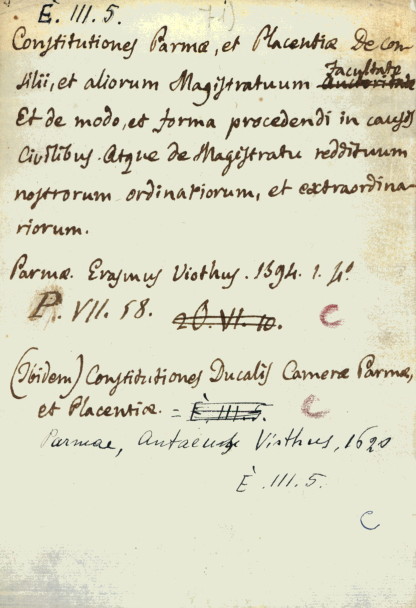 È. III. 5.
Constitutiones Parmæ, et Placentiæ De con-
silii, et aliorum Magistratuum Facultate
Auctoritate
Et de modo, et forma procedendi in causis
Civilibus. Atque de Magistratu reddituum
nostrorum ordinariorum, et extraordina-
riorum.
Parmæ. Erasmus Viothus. 1594. 1. 4°
P. VII. 58. 2 O. VI. 10. C
(Ibidem) Constitutiones Ducalis Cameræ Parmæ,
et Placentiæ. = È. III. 5. C
Parmae, Antaeus Viothus, 1620
È. III. 5.
C